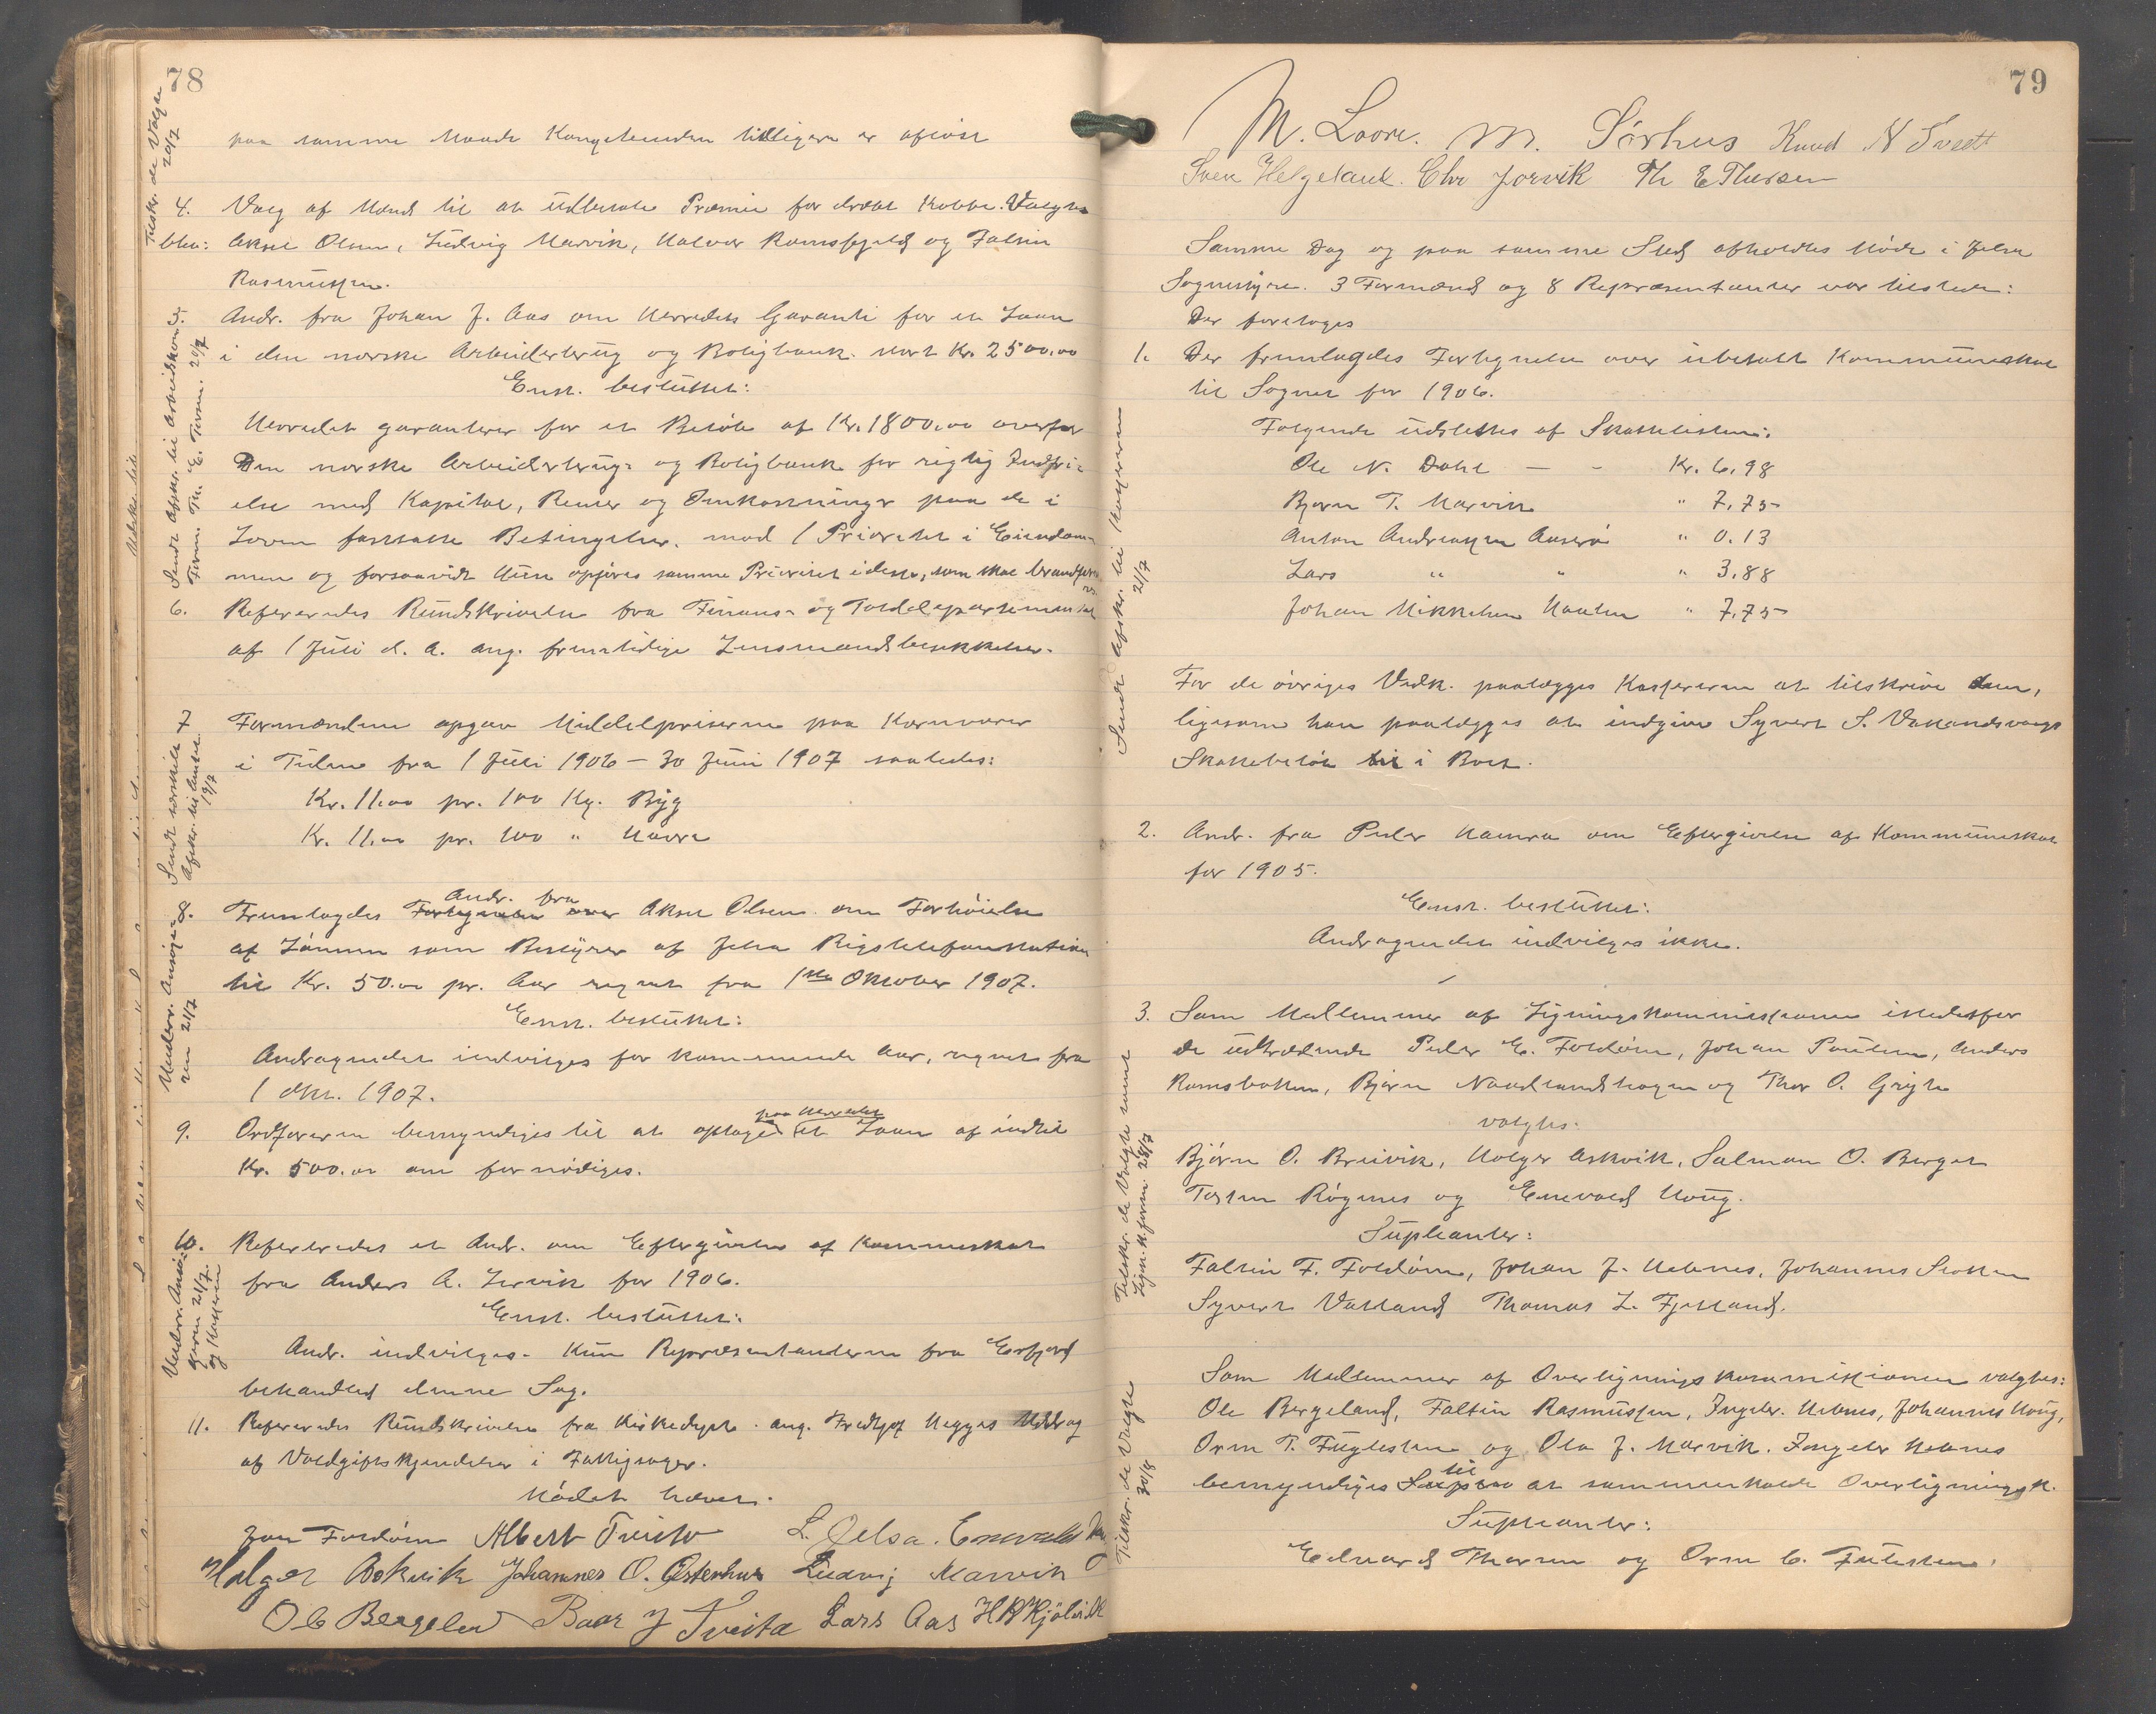 78
paa samme Maade Kongetienden tidligere er afløst
Tilskr. de Valgte
20/7
4. Valg af Mænd til at udbetale Præmie for dræbt Kobbe. Valgtes
blev: Aksel Olsen, Ludvig Marvik, Halvor Ramsfjeld og Faltin
Rasmussen.
5. Andr. fra Johan J. Aas om Herredets Garanti for et Laan
i den norske Arbeiderbrug og Boligbank stort Kr. 2500,00
Enst. besluttet:
Herredet garanterer for et Beløb af Kr. 1800,00 overfor
Den norske Arbeiderbrug- og Boligbank for rigtig Indfri-
else med Kapital, Renter og Omkostninger paa de i
Loven fastsatte Betingelser, mod 1 Prioritet i Eiendom-
men og forsaavidt Huse opføres samme Prioritet i disse, som skal brandfors
Sendt Afskr. til Arbeidskom
Form. Th. E. Torsen. 20/7
6. Refereredes Rundskrivelse fra Finans- og Tolddepartementet
af 1 Juli d. A. ang. fremtidige Lensmandsbesættelser.
7 Formændene opgav Middelpriserne paa Kornvarer
i Tiden fra 1 Juli 1906 – 30 Juni 1907 saaledes:
Kr. 11.00 pr. 100 Kg. Byg
Kr. 11.00 pr. 100 " Havre
Sendt særskilt
Afskr. til Amtet
19/7
Andr. fra
8. Fremlagdes Fortegnelse over Aksel Olsen om Forhøielse
af Lønnen som Bestyrer af Jelsa Rigstelefonstation
til Kr. 50.00 pr. Aar regnet fra 1ste Oktober 1907.
Enst. besluttet:
Andragendet indvilges for kommende Aar, regnet fra
1 Okt. 1907.
Underr. Ansøge-
ren 21/7
paa Herredet
9. Ordføreren bemyndiges til at optage et Laan af indtil
Kr. 500.00 om fornødiges.
10. Refereredes et Andr. om Eftergivelse af Kommuneskat
fra Anders A. Lervik for 1906.
Enst. besluttet:
Andr. indvilges. Kun Repræsentanterne fra Erfjord
behandled denne Sag.
Underr. Ansø-
geren 21/7.
og Kasseren
11. Refereredes Rundskrivelse fra Kirkedept. ang. Fredthjof Hegges Uddrag
af Voldgiftskjendelser i Fattigsager.
Mødet hævet.
Jon Foldøen Albert Tveito L. Jelsa. Enevald
Holger Askvik Johannes O. Østenhus Ludvig Marvik
Ole Bergeland Baar J Tveita Lars Aas H K Kjølvik
79
M. Loore. M. Sørhus Knud N Tvedt
Sven Helgeland. Chr Jorvik Th E Thorsen
Samme Dag og paa samme Sted afholdtes Møde i Jelsa
Sognestyre. 3 Formænd og 8 Repræsentanter var tilstede:
Der foretoges
1. Der fremlagdes Fortegnelse over ubetalt Kommuneskat
til Sognet for 1906.
Følgende udslettes af Skattelisten:
Ole N. Dahl — - Kr. 6,98
Bjørn T. Marvik " 7,75
Anton Andreassen Aaserø " 0.13
Lars " " " 3,88
Johan Mikkelsen " 7,75
For de øvriges Vedk. paalægges Kassereren at tilskrive dem,
ligesom han paalægges at indgive Syvert S. Vatlandsvaags
Skattebeløb til i Boet.
Sendt Afskr. til Kassereren
21/7
2. Andr. fra Peder Hamra om Eftergivelse af Kommuneskat
for 1905.
Enst. besluttet:
Andragendet indvilges ikke.
3. Som Medlemmer af Ligningskommissionen istedetfor
de udtrædende Peder E. Foldøen, Johan Poulsen, Anders
Ramsbotten, Bjørn Naadlandshagen og Thor O. Gryte
valgtes.
Bjørn O. Breivik, Holger Askvik, Salmon O. Berget
Torsten Røgnes og Enevald Houg.
Supleanter:
Faltin F. Foldøen, Johan J. Hebnes, Johannes Stokken
Syvert Vatland Thomas L. Fjetland.
Tilskr. de Valgte samt
Lign.k.form. 28/7
Som Medlemmer af Overligningskommissionen valgtes:
Ole Bergeland, Faltin Rasmussen, Ingebr. Hebnes, Johannes Houg,
Orm T. Fuglesten og Ola J. Marvik. Ingebr Hebnes
til
bemyndiges at sammenkalde Overligningsk.
Supleanter:
Edvard Thorsen og Orm C. Futesten.
Tilskr. de Valgte
30/8